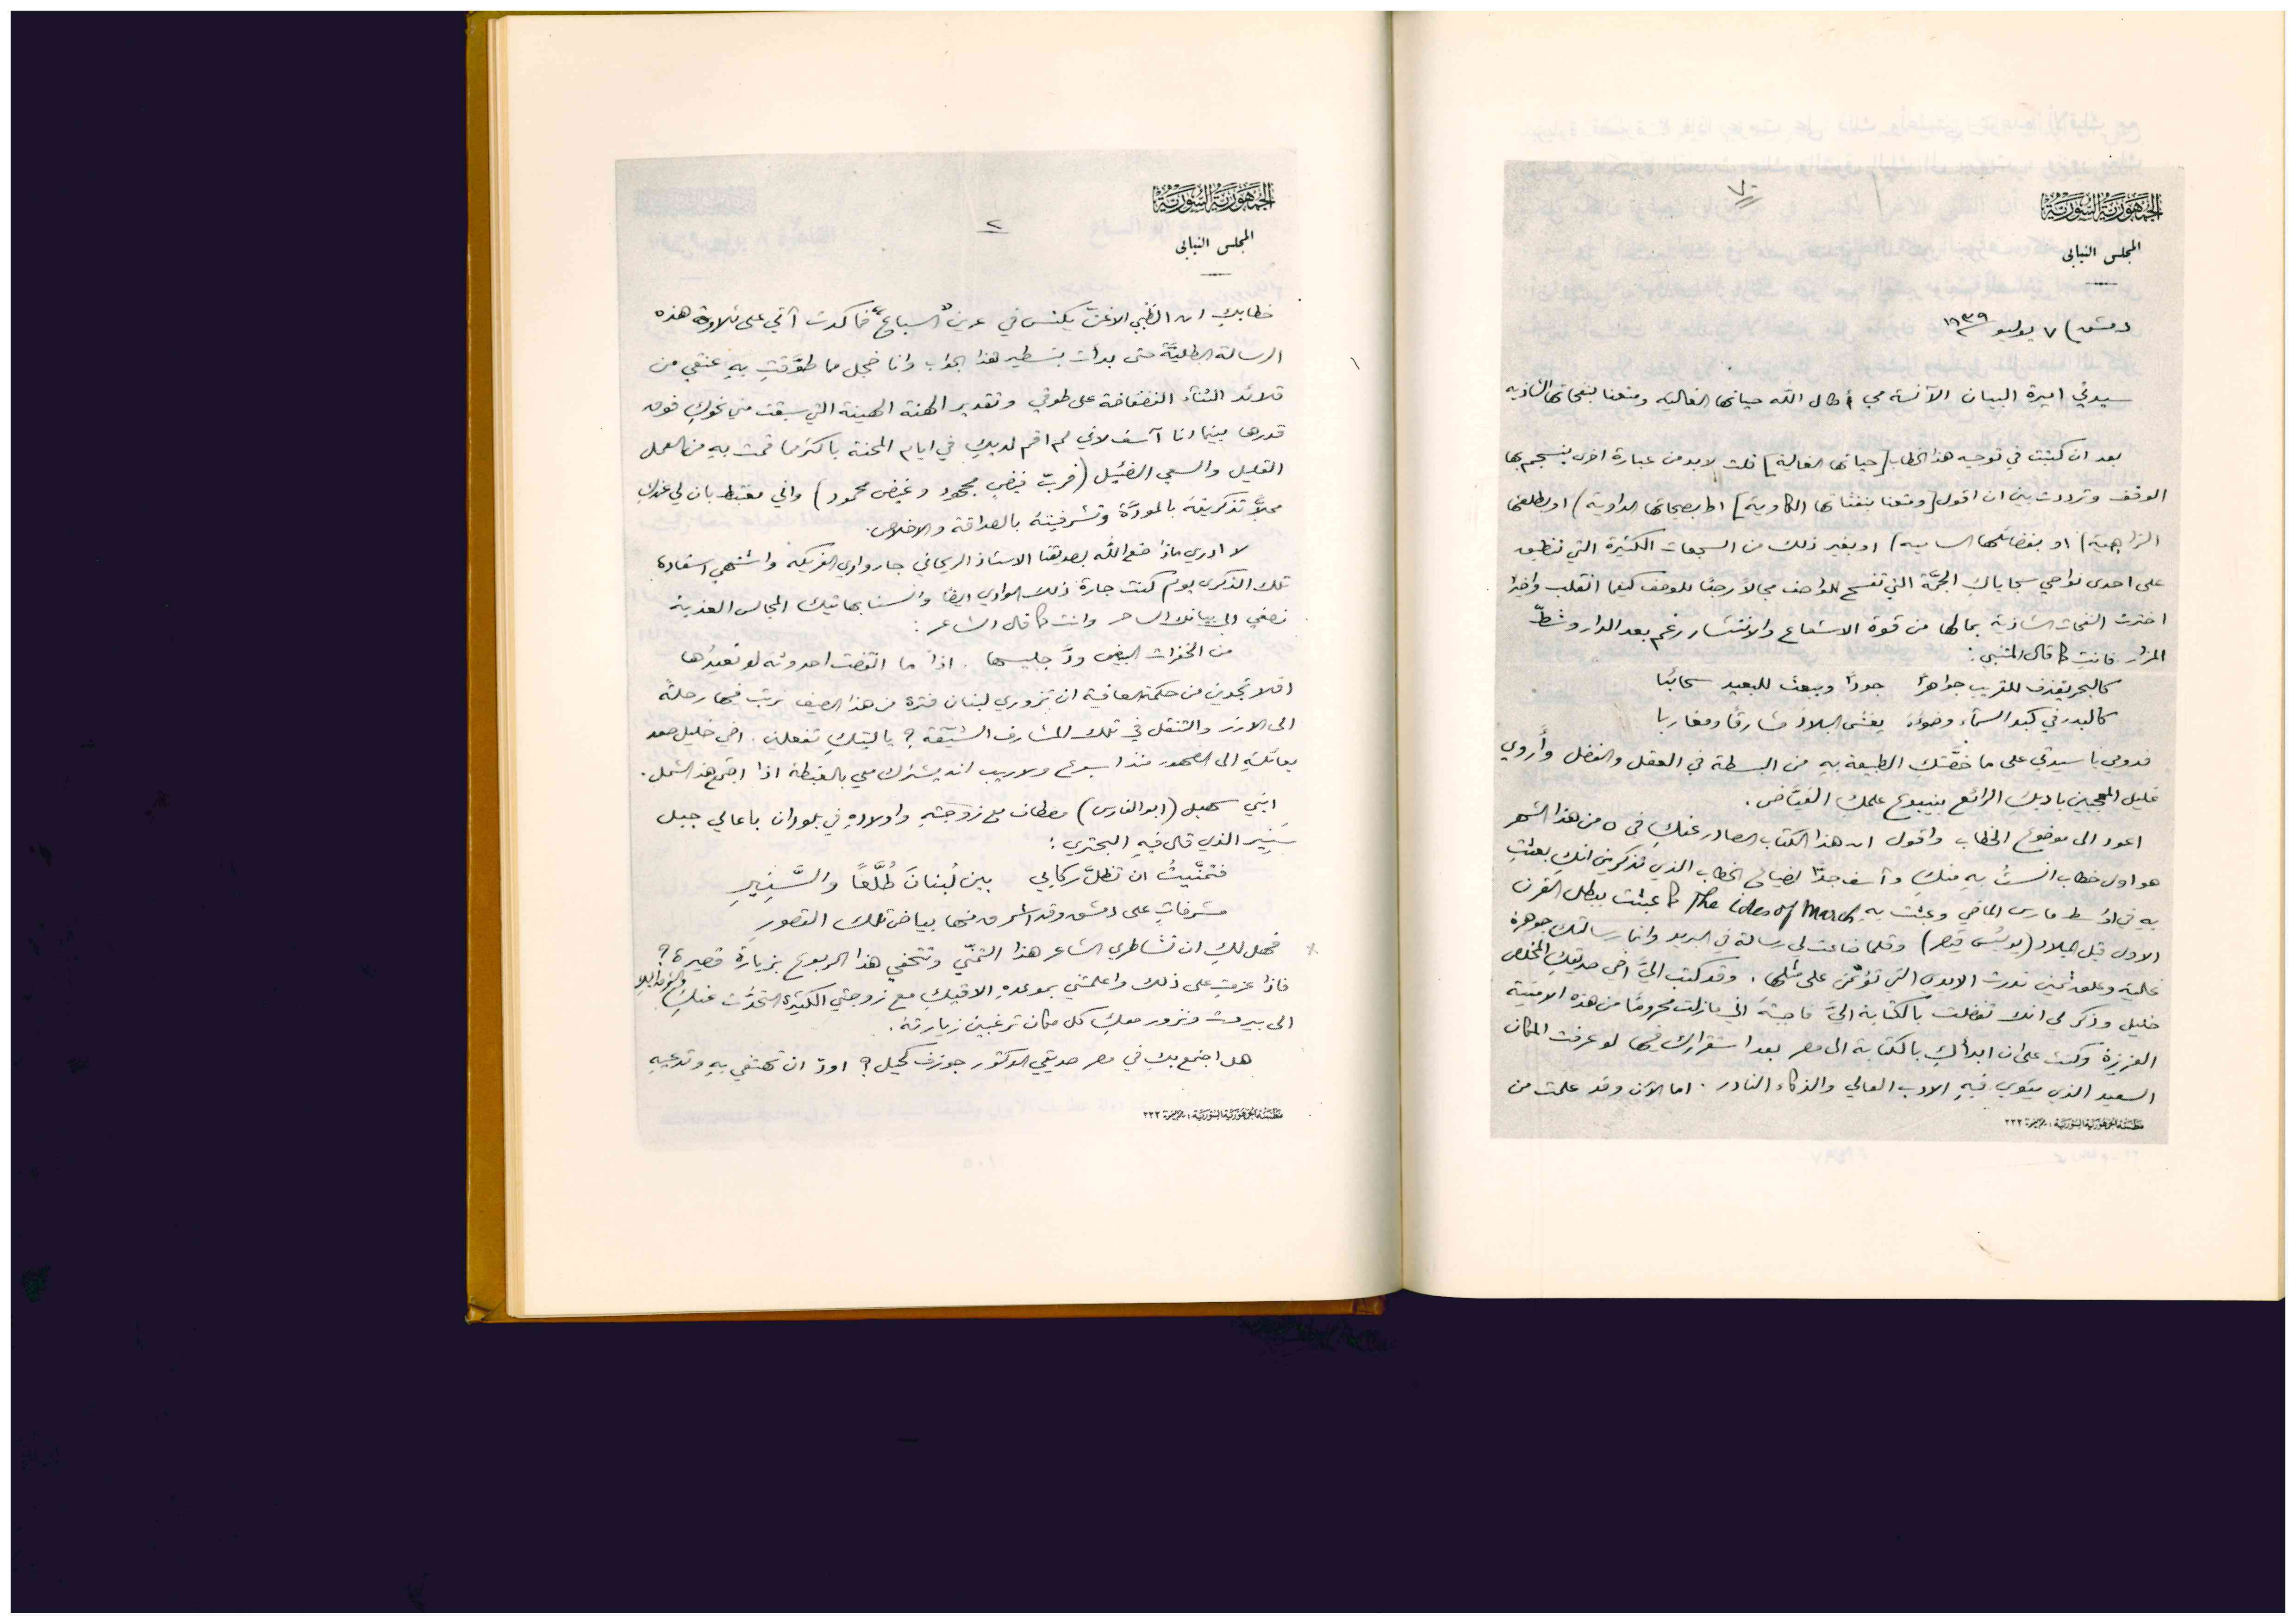 الجمهورية السورية
المجلس النيابي
دمشق) ٧ يوليو ١٩٣٩
سيدتي اميرة البيان الآنسة مي أطال الله حياتها الغالية ومتعنا بنفحاتها الشاذيه
بعد ان كتبت في توجيه هذا الخطاب [حياتها الغالية] قلت لابد من عبارة اخرى ينسجم بها
الوقف وترددت بين ان اقول [ومتعنا بنفثاتها الكاوية] او بصيحاتها الداوية) او بطلعتها
الزاهية) او بفضائلها السامية) او بغير ذلك من السجعات الكثيرة التي تنطبق
على احدى نواحي سجاياكِ الجمَّة التي تفسح للواصف مجالاً رحبًا للوصف كيفما انقلب واخيرًا
اخترت النفحات الشاذية بما لها من قوة الاشعاع والانتشار رغم بعد الدار وشطّ
المزار. فانتِ كما قال المتنبي:
كالبحر يقذف للقريب جواهرًا جودًا ويبعث للبعيد سحائبا
كالبدر في كبد السماء وضوءه يغشى البلاد مشارقًا ومغاربا
فدومي يا سيدتي على ما خصَّتكِ الطبيعة بهِ من البسطة في العقل والفضل وأَروي
غليل المعجبين بادبكِ الرائع بينبوع علمكِ الفيَّاض.
اعود الى موضوع الخطاب واقول ان هذا الكتاب الصادر عنكِ في ٥ من هذا الشهر
هو اول خطاب انستُ بهِ منكِ وآسف جدًّا لضياع الخطاب الذي تذكرين انكِ بعثتِ
بهِ في اواسط مارس الماضي وعبثت بهِ The ides of March كما عبثت ببطل القرن
الاول قبل الميلاد (يوليُس قيصر) وقلما ضاعت لي رسالة في البريد وانما رسالتكِ جوهرة
غالية وعلق ثمين ندرت الايدي التي تؤتمن على مثلها. وقد كتب اليَّ اخي صديقكِ المخلص
خليل وذكر لي انك تفضلت بالكتابة اليَّ فاجبتهُ اني مازلت محرومًا من هذه الامنية
العزيزة وكنت على ان ابدأكِ بالكتابة الى مصر بعد استقراركِ فيها لو عرفت المكان
السعيد الذي يثوي فيهِ الادب العالي والذكاء النادر. اما الآن وقد علمت من
مطبعة الجمهورية السورية: ٢٢٢
الجمهورية السورية
المجلس النيابي
٢
خطابكِ ان الظبي الاغنّ يكنس في عرين "السباع" فما كدت آتي على تلاوة هذه
الرسالة الطليَّة حتى بدأت بتسطير هذا الجواب وانا خجل مما طوَّقتِ بهِ عنقي من
قلائد الثناء الفضفاضة على طوقي وتقدير الهنة الهينة التي سبقت مني نحوكِ فوق
قدرها بينما انا آسف لاني لم اقم لديكِ في ايام المحنة باكثر مما قمت بهِ من العمل
القليل والسعي الضئيل (فربّ فيضٍ مجحود وغيض محمود) واني مغتبط بان لي عندكِ
محلاًّ تذكرينهُ بالمودَّة وتشرفينهُ بالصداقة والاخلاص.
لا ادري ماذا صنع الله بصديقنا الاستاذ الريحاني جار وادي الفريكه واشتهي استعادة
تلك الذكرى يوم كنت جارة ذلك الوادي ايضًا والسنا بهاتيك المجالس العذبة
نصغي الى بيانك الساحر وانت كما قال الشاعر:
من الخفرات البيض ودَّ جليسها . اذا ما انقضت احدوثة لو تعيدُها
افلا تجدين من حكمة العافية ان تزوري لبنان فترة من هذا الصيف نرتب فيها رحلة
الى الارز والتنقل في تلك المشارف الشيّقة؟ ياليتكِ تفعلين. اخي خليل صعد
بعائلتهِ الى الصهور منذ اسبوع ولا ريب انه يشترك معي بالغبطة اذا اجتمع هذا الشمل.
ابني سهيل (ابو الفارس) مصطاف مع زوجتهِ واولادهِ في بلودان باعالي جبل
سَنِيِر الذي قال فيهِ البحتري:
فتمنّيتُ ان تظلَّ ركابي بين لُبنانَ طُلَّعًا والسَّنِيرِ
مشرفاتٍ على دمشق وقد اشرق منها بياض تلك القصورِ
فهل لكِ ان تشاطري الشاعر هذا التمنّي وتتحفي هذا الربوع بزيارة قصيرة؟
فاذا عزمتِ على ذلك واعلمتني بموعدهِ الاقيكِ مع زوجتي الكثيرة التحدُّث عنكِ
الى بيروت ونزور معكِ كل مكان ترغبين زيارتهُ.
هل اجتمع بكِ في مصر صديقي الدكتور جوزف كحيل؟ اودّ ان تحتفي بهِ وتدعيهِ
مطبعة الجمهورية السورية: ٢٢٢